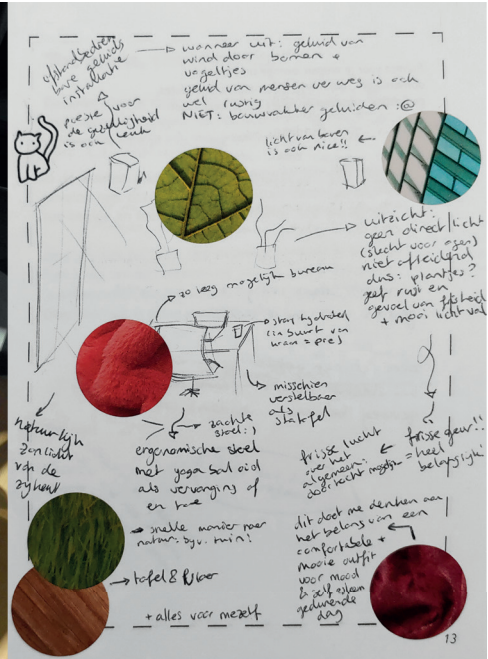 afstandsbedien
bare geluids
installatie
→ wanneer uit: geluid van
wind door bomen +
vogeltjes
geluid van mensen ver weg is ook
wel rustig
NIET: bouwvakker geluiden :@
poesje voor
de gezelligheid
is ook leuk
licht van boven
is ook nice!!
uitzicht:
geen direct licht
(slecht voor ogen)
niet afleidend
dus: plantjes?
geef rust en
gevoel van frisheid
+ mooi lichtval
zo leeg mogelijk bureau
stay hydrated
(in buurt van
kraan = pre)
misschien
verstelbaar
als
statafel
natuurlijk
zonlicht
van de
zijkant
zachte
stoel :)
ergonomische stoel
met yoga bal oid
als vervanging af
en toe
frisse lucht
over het
algemeen:
doortocht mogelijk
frisse geur!!
= heel
belangrijk!
→ snelle manier naar
natuur: bijv. tuin!
dit doet me denken aan
het belang van een
comfortabele +
mooie outfit
voor mood
& self esteem
gedurende
dag
→ tafel & vloer
+ alles voor mezelf
13